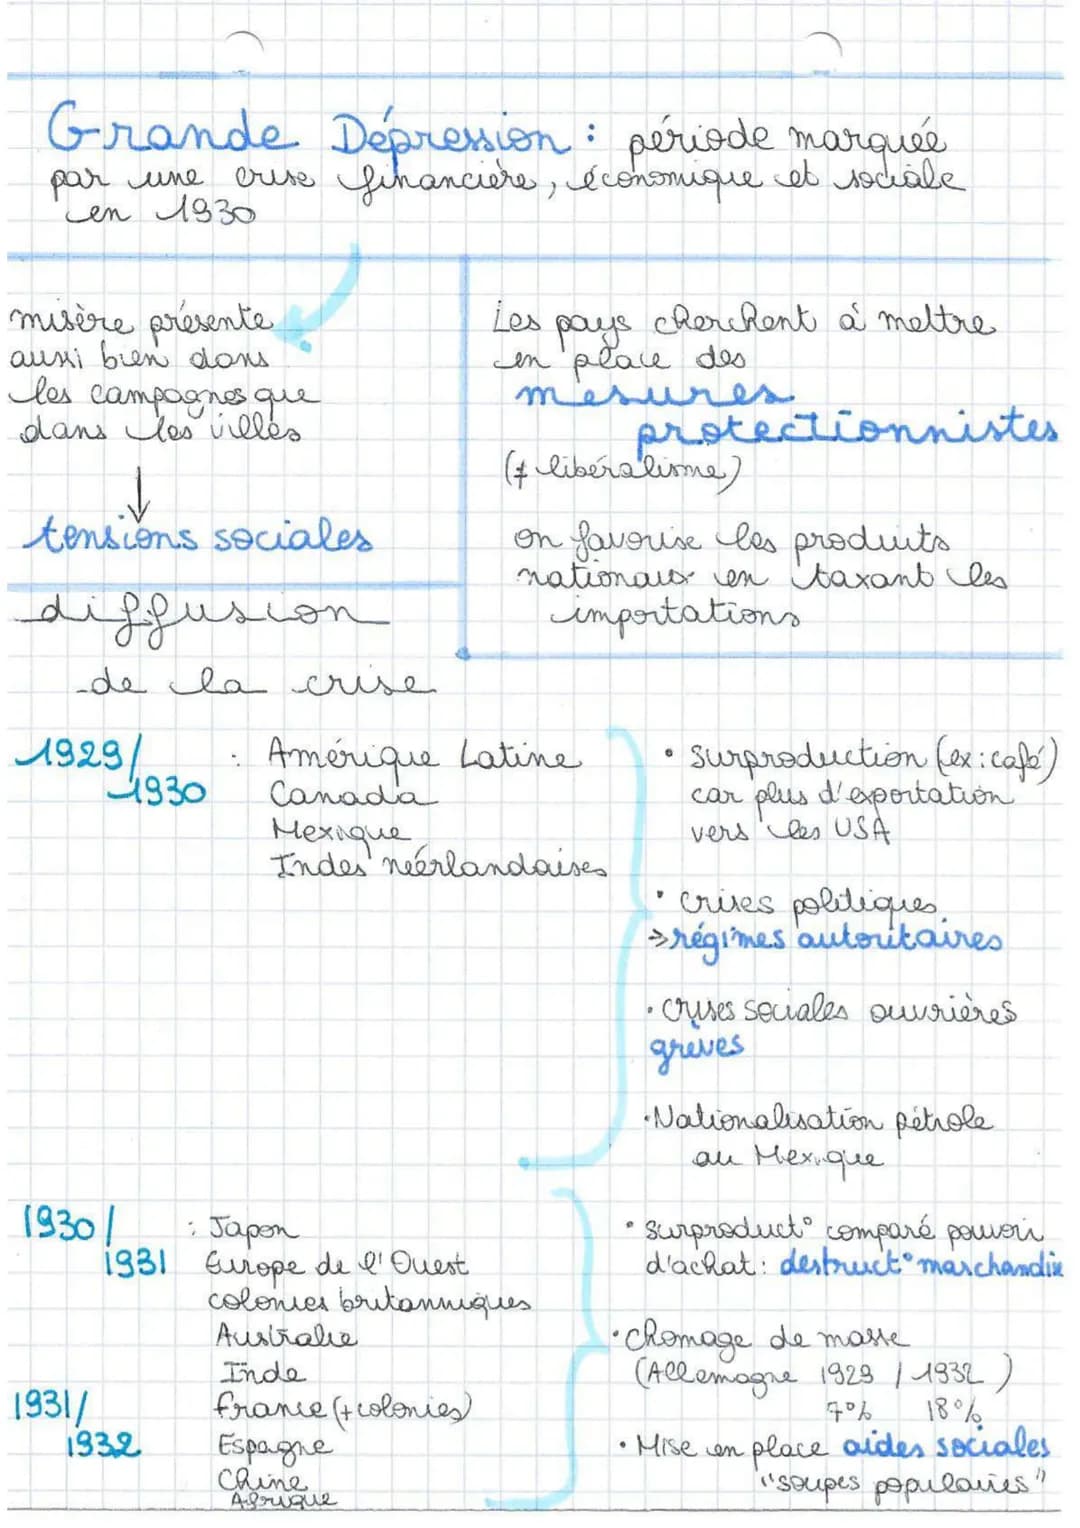 Grande Dépression : période marquée
par une crise financière, économique et sociale
en 1930
misère présente
aussi bien dans
les campagnes que
dans les villes
↓
tensions sociales
Les pays cherchent à mettre
en place des
mesures
protectionnistes
(≠ libéralisme)
on favorise les produits
nationaux en taxant les
importations
diffusion
de la crise
1929/
1930
: Amérique Latine
Canada
Mexique
Indes néerlandaises
• Surproduction (ex: café)
car plus d'exportation
vers les USA
• crises politiques
→ régimes autoritaires
• Crises sociales ouvrières
grèves
• Nationalisation pétrole
au Mexique
1930/
1931
: Japon
Europe de l'Ouest
colonies britanniques
Australie
Inde
1931/
1932
France (+ colonies)
Espagne
Chine
Afrique
• Surproduct° comparé pouvoir
d'achat: destruct° marchandise
• Chomage de masse
(Allemagne 1929 / 1932)
7% 18%
• Mise en place aides sociales
"soupes populaires"